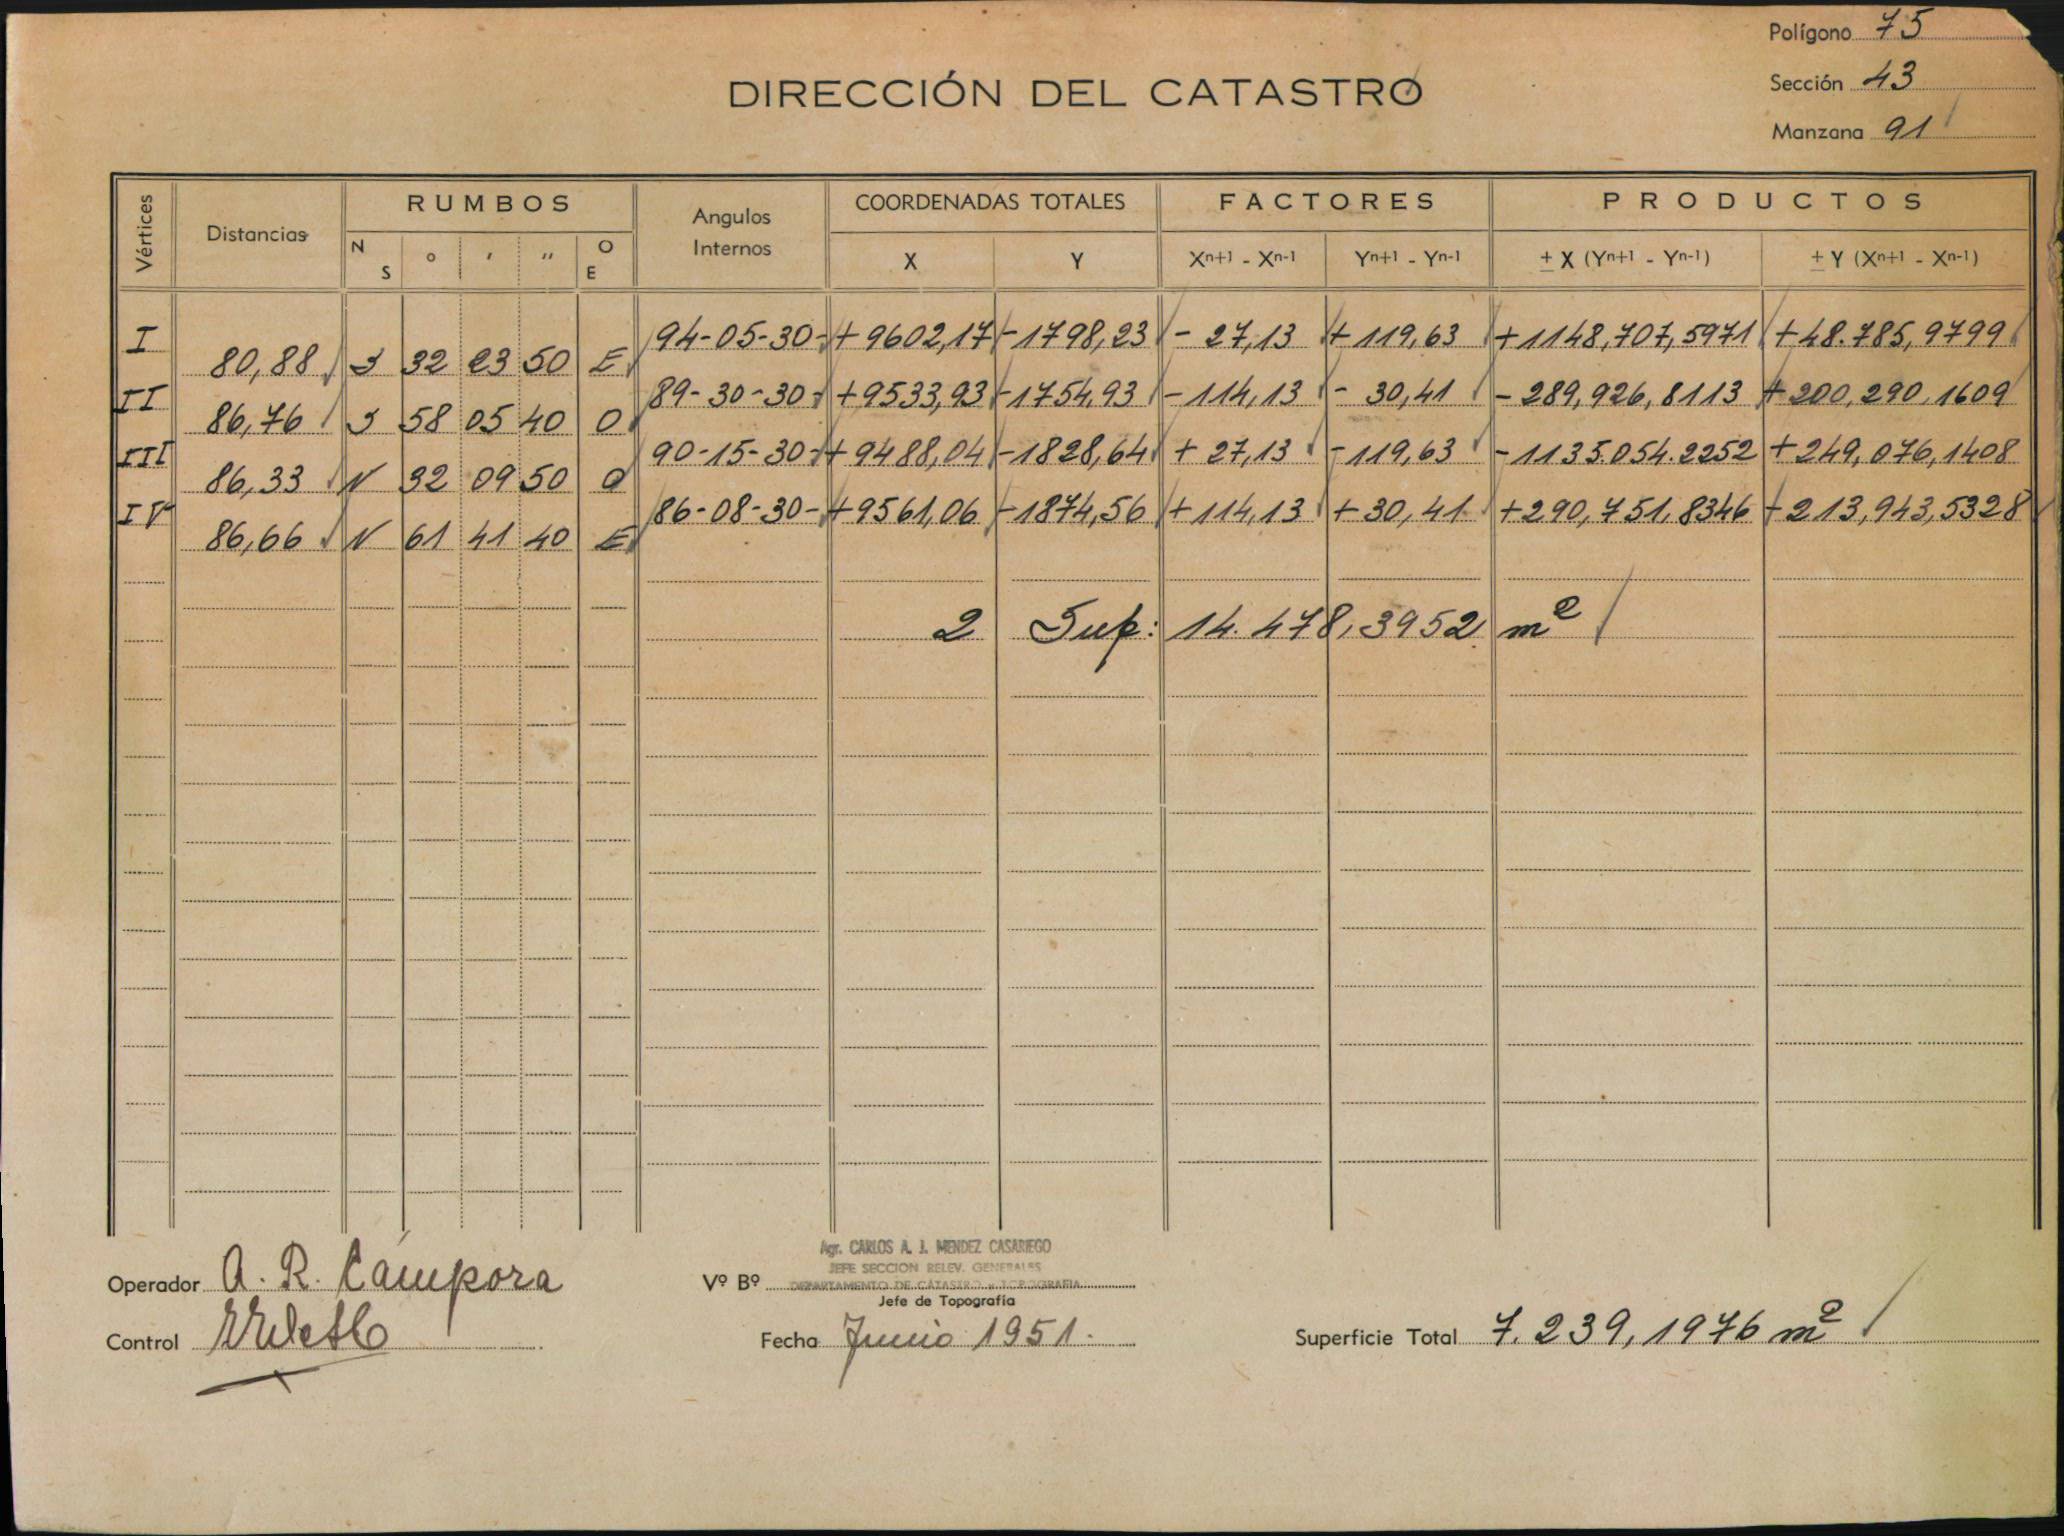 Polígono 75
DIRECCIÓN DEL CATASTRO
Sección 43
Manzana 91
Vértices Distancias RUMBOS Angulos Internos COORDENADAS TOTALES FACTORES PRODUCTOS
N S ° ′ ″ O E X Y Xn+1 - Xn-1 Yn+1 - Yn-1 ± X (Yn+1 - Yn-1) ± Y (Xn+1 - Xn-1)
I 94-05-30- +9602,17 -1798,23 - 27,13 +119,63 +1148,707,5971 +48.785,9799
80,88 S 32 23 50 E
II 89-30-30- +9533,93 -1754,93 -114,13 - 30,41 -289,926,8113 +200,290,1609
86,76 S 58 05 40 O
III 90-15-30- +9488,04 -1828,64 + 27,13 -119,63 -1135.054.2252 +249,076,1408
86,33 N 32 09 50 O
IV 86-08-30- +9561,06 -1874,56 +114,13 +30,41 +290,751,8346 -213,943,5328
86,66 N 61 41 40 E
2 Sup: 14.478,3952 m²
Agr. CARLOS A. J. MENDEZ CASARIEGO
JEFE SECCION RELEV. GENERALES
Operador A. R. Cámpora Vº Bº DEPARTAMENTO DE CATASTRO y TOPOGRAFIA
Jefe de Topografía
Control Fecha Junio 1951. Superficie Total 7.239,1976 m²